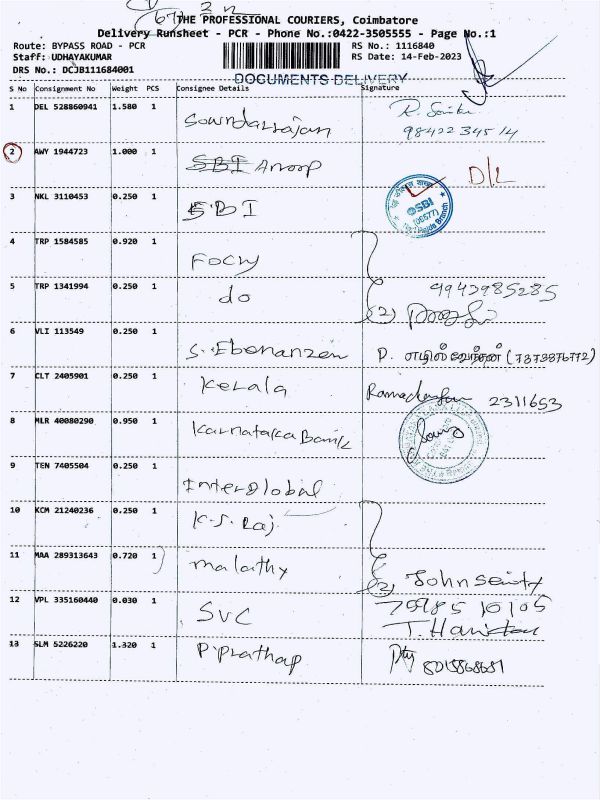 THE PROFESSIONAL COURIERS, Coimbatore
Delivery Runsheet - PCR - Phone No.:0422-3505555 - Page No.:1
Route: BYPASS ROAD - PCR RS No.: 1116840
Staff: UDHAYAKUMAR RS Date: 14-Feb-2023
DRS No.: DCJB111684001
DOCUMENTS DELIVERY
S No Consignment No Weight PCS Consignee Details Signature
1 DEL 528860941 1.580 1 Soundarrajan
98422 34514
2 AWY 1944723 1.000 1 SBI Anoop D/L
3 NKL 3110453 0.250 1 SBI SBI
4 TRP 1584585 0.920 1
5 TRP 1341994 0.250 1 do 9943985285
(2)
6 VLI 113549 0.250 1 S. Ebenanzen P. எழில் வேந்தன் (7373876772)
7 CLT 2405901 0.250 1 Kerala 2311653
8 MLR 40080290 0.950 1 Karnataka Bank
9 TEN 7405504 0.250 1 Interglobal
10 KCM 21240236 0.250 1 K.S. Raj
11 MAA 289313643 0.720 1 malathy (2)
12 VPL 335160440 0.030 1 SVC
13 SLM 5226220 1.320 1 P. Prathap